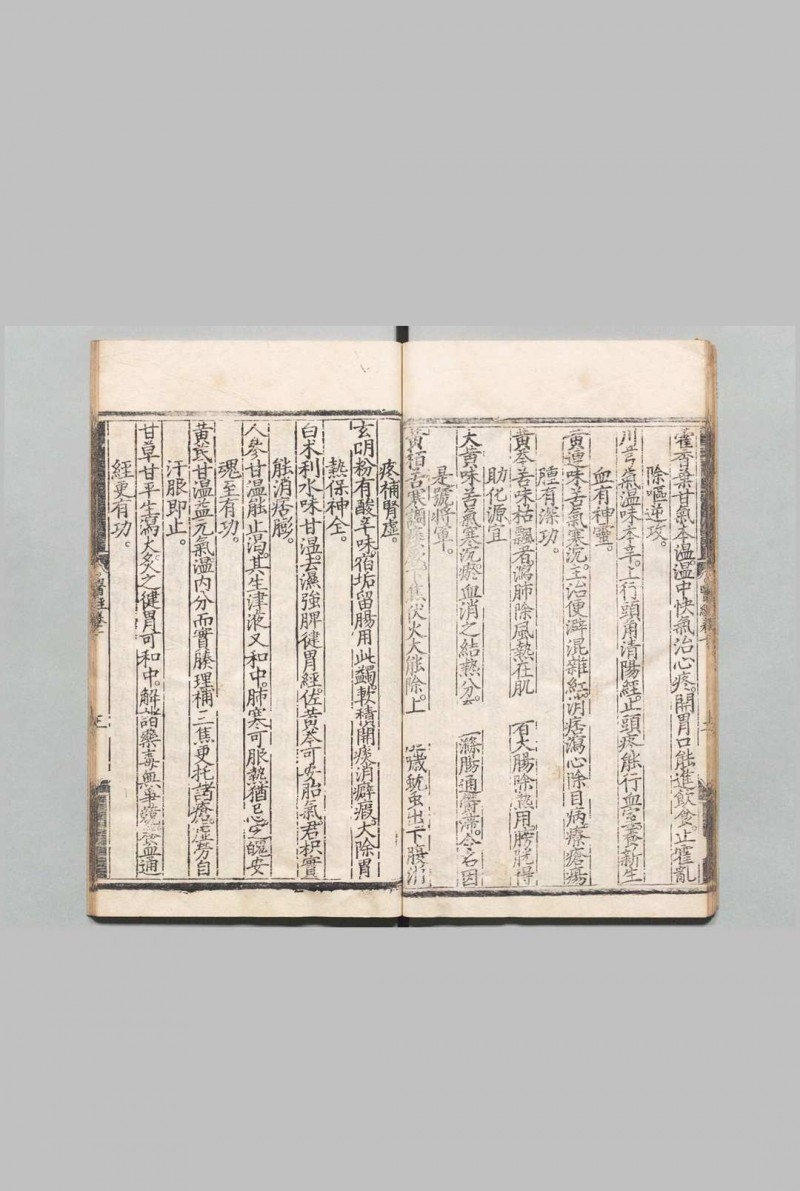 藿香葉甘氣本溫。溫中快氣治心疼。開胃口能進飲食。止霍亂
除嘔逆攻。
川芎氣溫味本辛。上行頭角清陽經。止頭疼能行血室。養新生
血有神靈。
黄連味苦氣寒沉。主治便澼混雜紅。消痞瀉心除目病。療瘡瘍
有深功。
黄芩苦味枯飄者。瀉肺除風熱在肌
石大腸除熱用。膀胱得
助化源宜
大黄味苦氣寒沉。瘀血消之結熱分。
滌腸通
令名因
是號將軍。
黄栢苦寒
焦伏火大能除。上
蚘虫出下
疼補腎虛。
玄明粉有酸辛味。宿垢留腸用此蠲。軟積開痰消癖瘕。大除胃
熱保神全。
白术利水味甘溫。去濕強脾健胃經。佐黄芩可安胎氣。君枳實
能消痞膨。
人參甘溫能止渴。其生津液又和中。肺寒可服熱猶忌。定魄安
魂至有功。
黄芪甘溫益元氣。溫內分而實腠理。補三焦更托諸瘡。虛勞自
汗服即止。
甘草甘平生瀉火。炙之健胃可和中。解諸藥毒無爭競。養血通
經更有功。